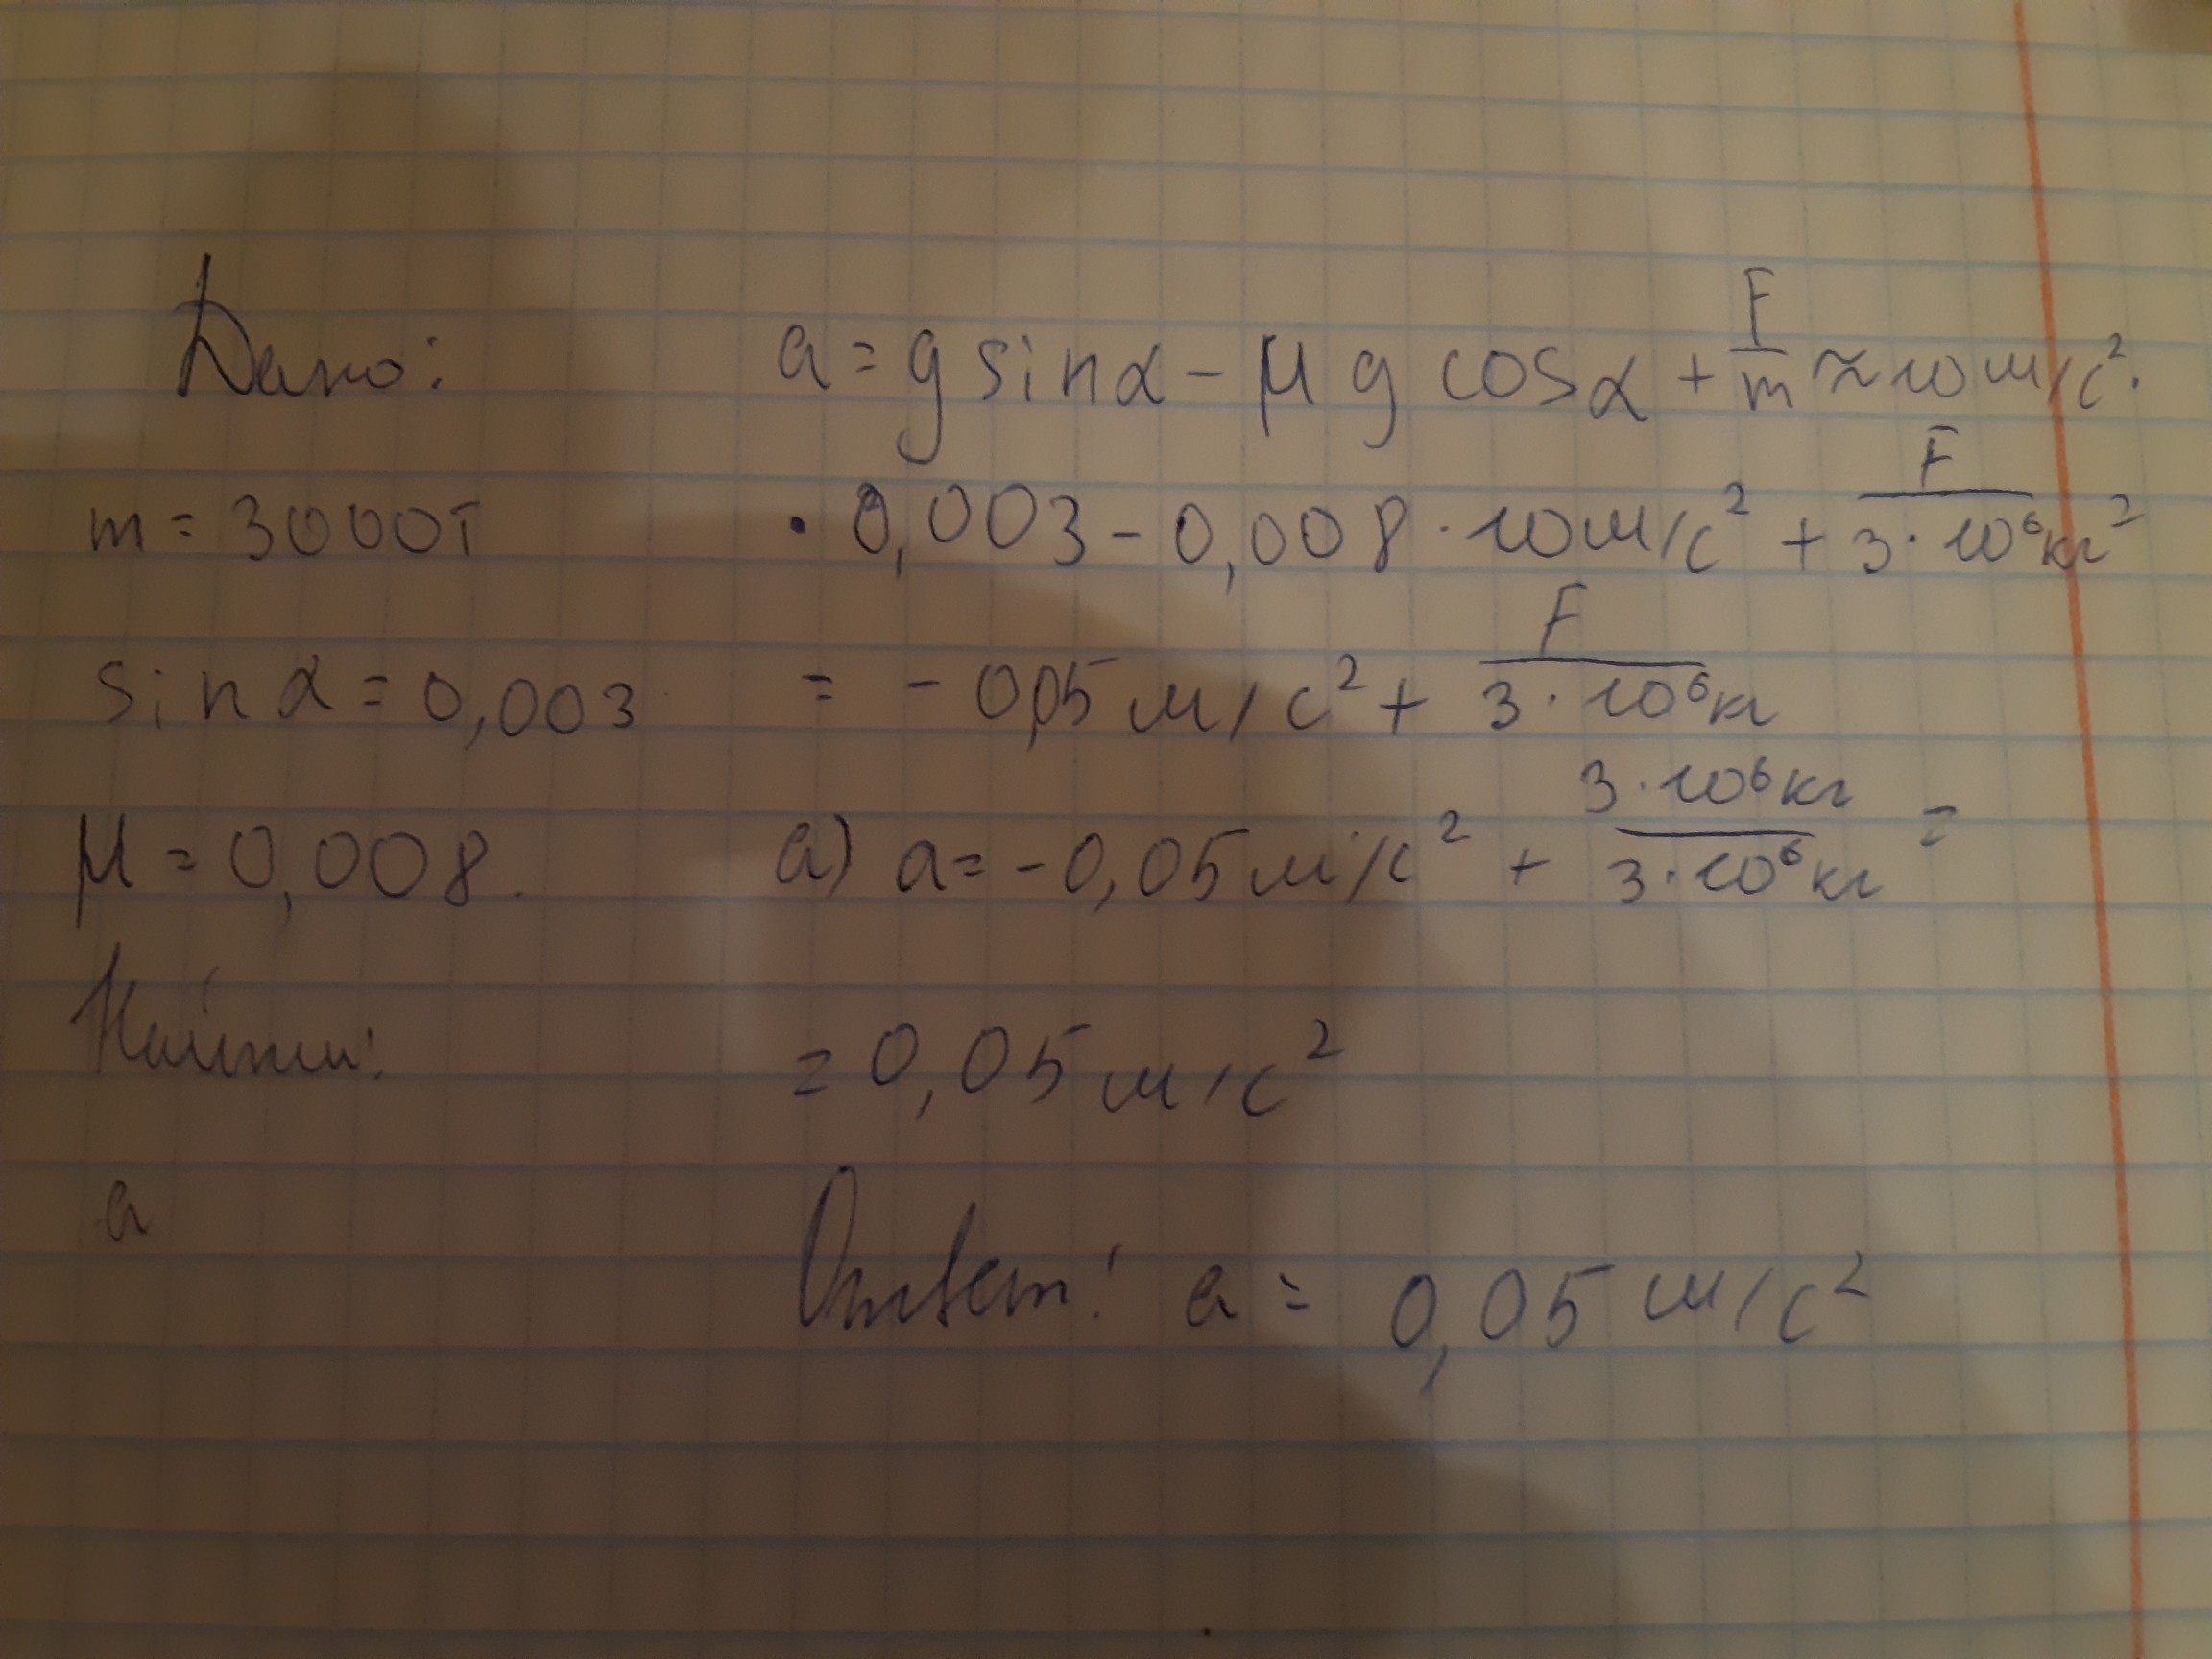 Дано:
m = 3000т
sinα = 0,003
μ = 0,008.
Найти:
a
a = g sinα - μ g cosα + F/m ≈ 10 м/с².
· 0,003 - 0,008 · 10 м/с² + F/3·10⁶кг =
= - 0,05 м/с² + F/3·10⁶кг
а) a = - 0,05 м/с² + 3·10⁶кг/3·10⁶кг =
= 0,05 м/с²
Ответ: a = 0,05 м/с²